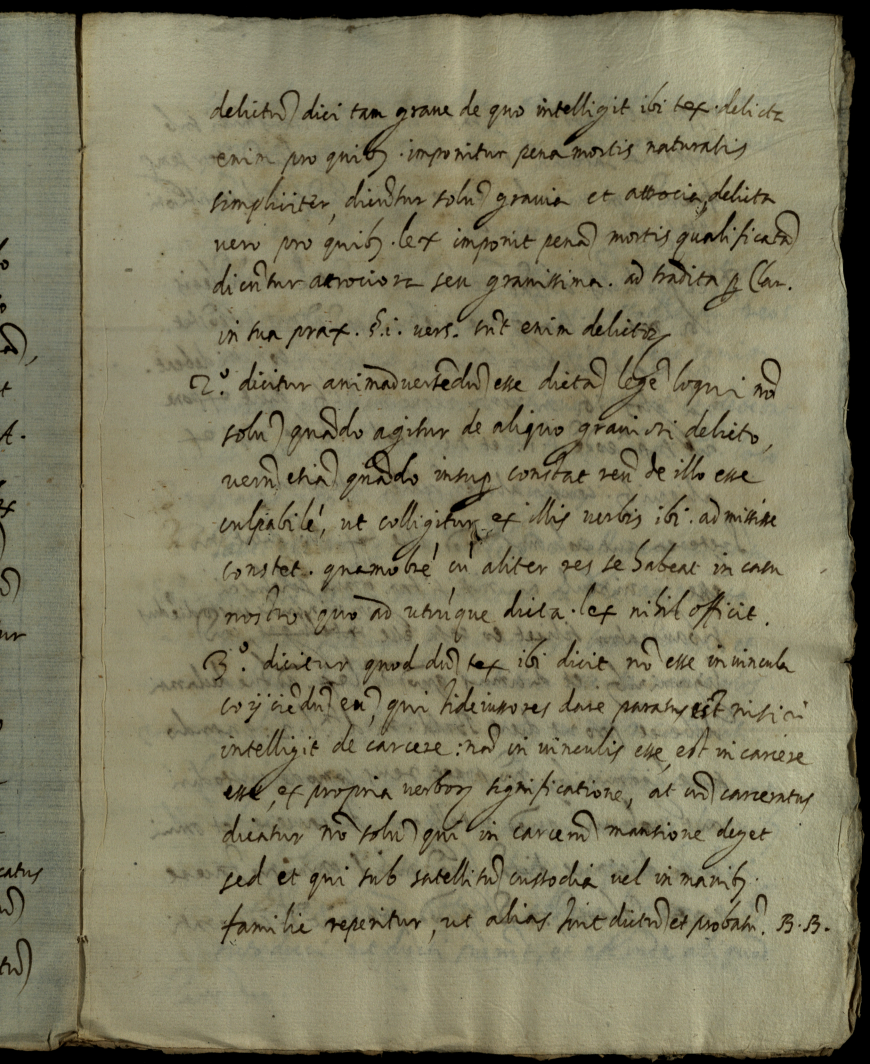 delictũ dici tam graue de quo intelligit ibi tex. delicta
enim pro quibȝ. imponitur pena mortis naturalis
simpliciter, dicũtur solũ gravia et atrocia, delicta
vero pro quibȝ. lex imponit penã mortis qualificatã
dicũtur atrociora seu gravissima. ad tradita ꝑ Clar.
in sua prax. §. i. vers. sũt enim delictoꝝ
2.º dicitur animaduertẽdũ esse dictã legẽ loqui nõ
solũ quãdo agitur de aliquo graviori delicto,
verũ etiã quãdo insuꝑ constat reũ de illo esse
culpabilẽ, ut colligitur ex illis verbis ibi. admissise
constet. quamobrẽ cũ aliter res se habeat in casu
nostro quo ad utrũque dicta. lex nihil officit.
3.º dicitur quod dũ tex ibi dicit nõ esse in vincula
coijciẽdũ eũ, qui fideiussores dare paratus est
intelligit de carcere: nã in vinculis esse, est in carcere
esse, ex propria verboꝝ significatione, at cũ carceratus
dicatur nõ solũ qui in carcerũ mansione deget
sed et qui sub satellitũ custodia vel in manibȝ.
familie reperitur, ut alias fuit dictũ et probatũ. B. B.
catus